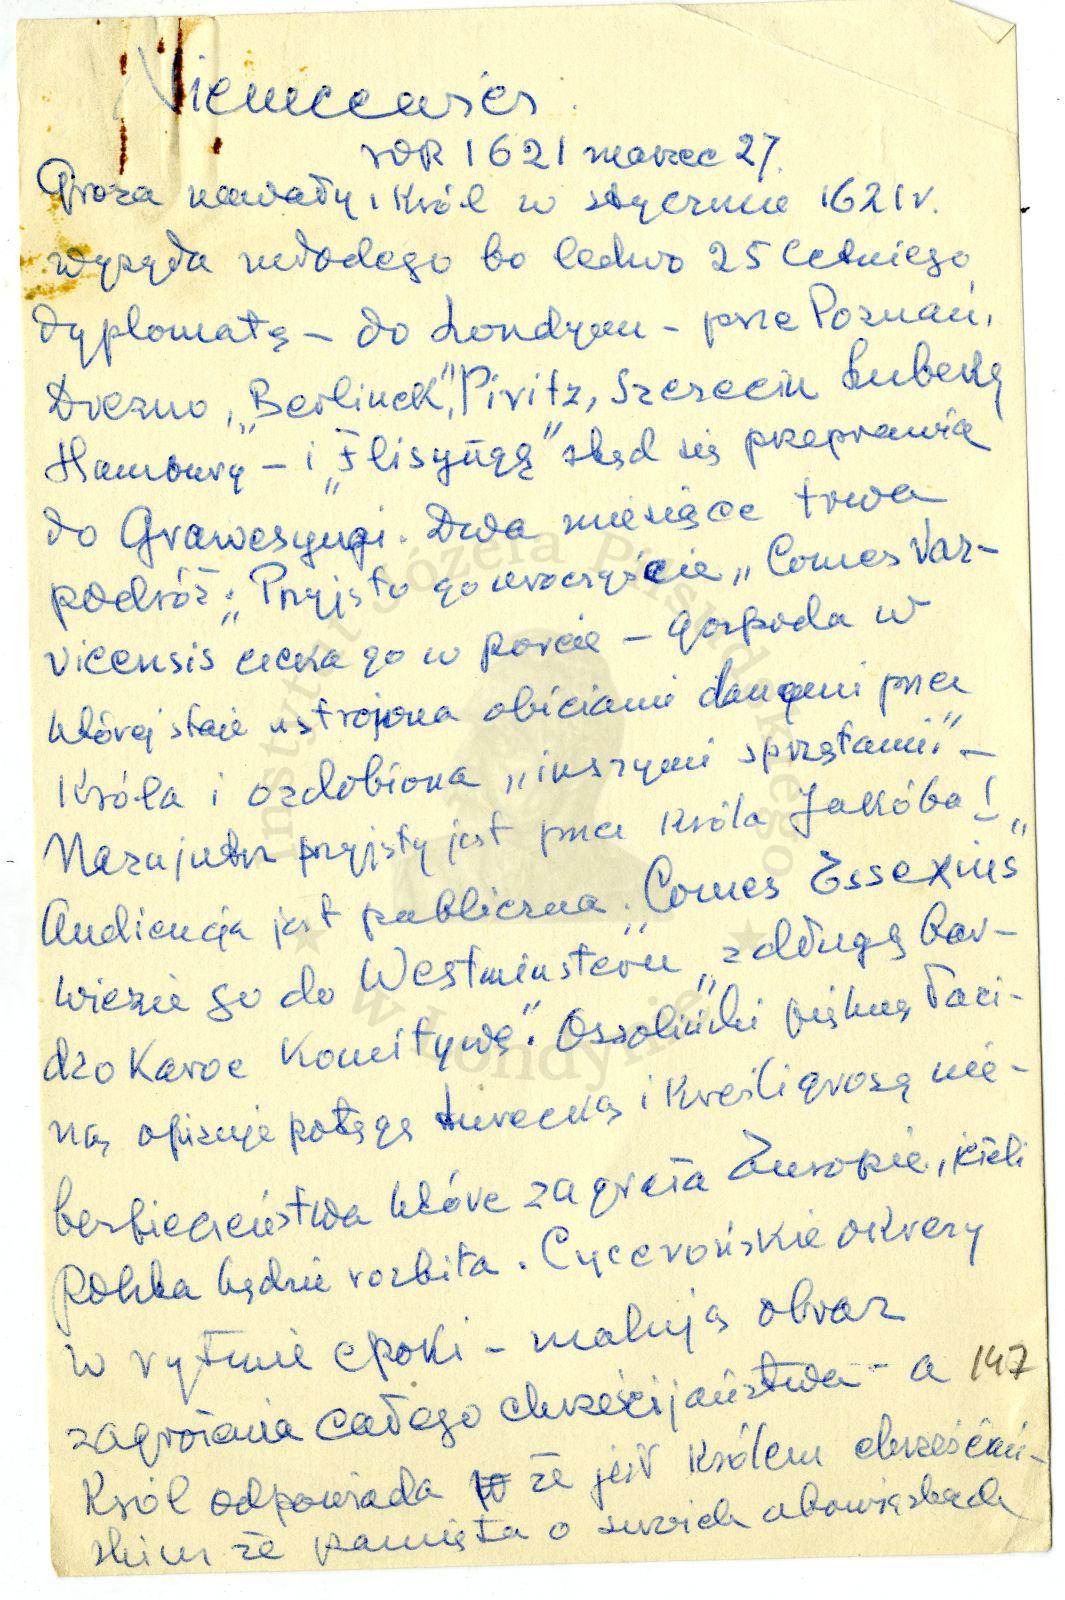 Niemcewicz
rok 1621 marzec 27.
Groza nawały, Król w styczniu 1621 r.
wysyła młodego bo ledwo 25 letniego
dyplomatę – do Londynu – prze Poznań,
Drezno, "Berlinek", Piritz, Szczecin Lubekę
Hamburg – i "Flisyngą" skąd się przeprawia
do Grawesyngi. Dwa miesiące trwa
podróż. Przyjęto go uroczyście "Comes Var-
vicensis czeka go w porcie – gospoda w
której staje ustrojona obiciami danymi prze
Króla i ozdobiona "inszymi sprzętami" –
Nazajutrz przyjęty jest prze Króla Jakóba!
Audiencja jest publiczna. "Comes Essexius"
wiezie go do Westminsteru "z długą bar-
dzo Karoc Komitywą". Ossoliński piękną łaci-
ną opisuje potęgę turecką i Kreśli grozę nie-
bezpieczeństwa które zagraża Europie, jeżeli
Polska będzie rozbita. Cycerońskie okresy
w rytmie epoki – malują obraz
zagrożenia całego chrześcijaństwa – a 147
Król odpowiada że jest Królem chrześciań-
skim że pamięta o swoich obowiązkach
Instytut Józefa Piłsudskiego
w Londynie